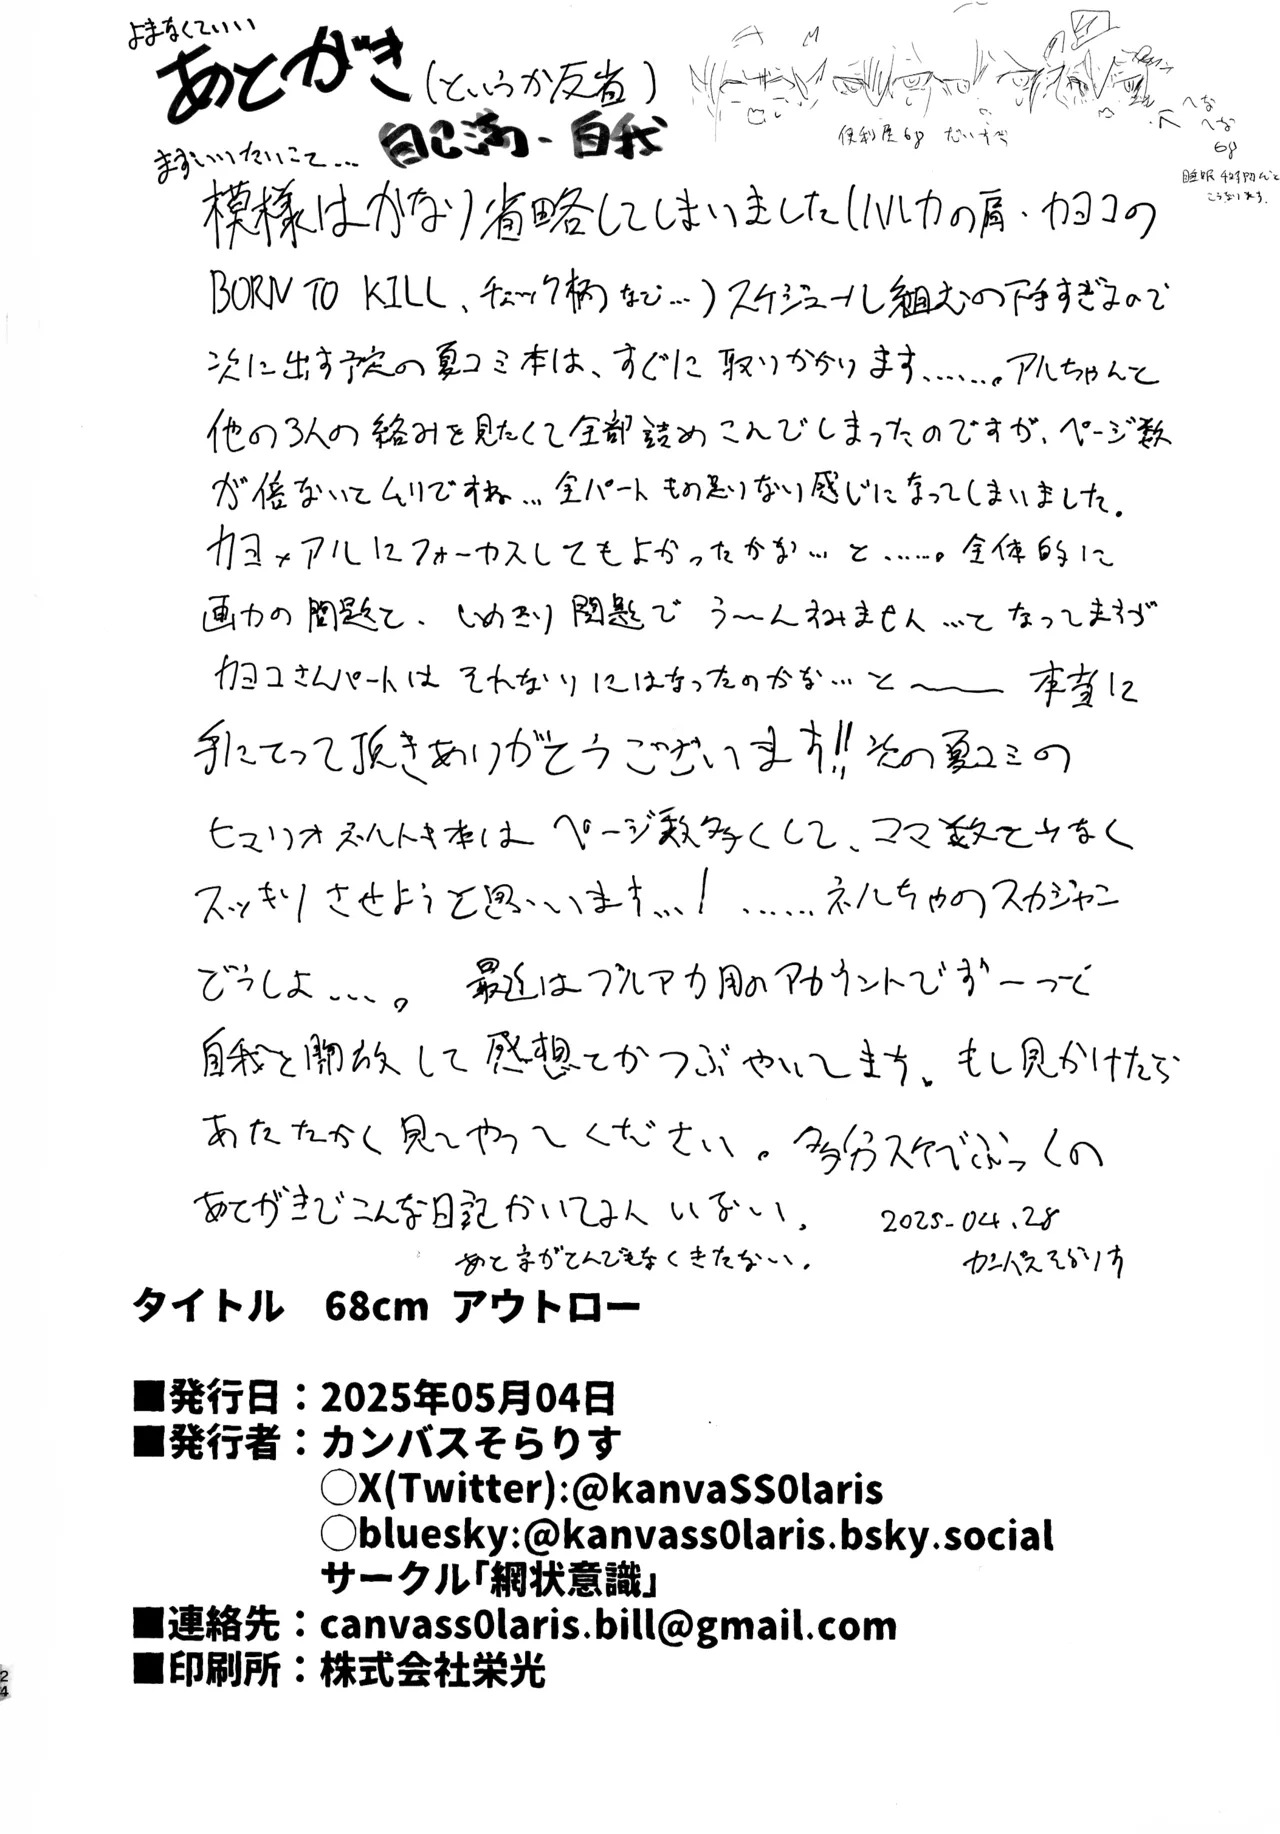 よまなくていい
あとがき(というか反省)
自己満-自我
便利屋68 だいすき
へな
へな
68
まずいいたいこと…
模様はかなり省略してしまいました(ハルカの肩・カヨコの
BORN TO KILL、チェック柄など…)スケジュール組むの下手すぎるので
次に出す予定の夏コミ本は、すぐに取りかかります……。アルちゃんと
他の3人の絡みを見たくて全部詰めこんでしまったのですが、ページ数
が倍ないとムリですね…全パートもの足りない感じになってしまいました。
カヨ×アルにフォーカスしてもよかったかな…と……。全体的に
画力の問題と、しめきり問題でう〜んすみません…となってますが
カヨコさんパートはそれなりにはなったのかな…と〜 本当に
手にとって頂きありがとうございます!!次の夏コミの
ヒマリオネルトキ本はページ数多くして、コマ数を少なく
スッキリさせようと思います…! ……ネルちゃのスカジャン
どうしよ…。 最近はブルアカ用のアカウントでずーっと
自我を開放して感想とかつぶやいてます。もし見かけたら
あたたかく見てやってください。多分スケベぶっくの
あとがきでこんな日記かいてる人いない。 2025-04.28
あと字がとんでもなくきたない。 カンバスそらりす
タイトル 68cm アウトロー
■発行日：2025年05月04日
■発行者：カンバスそらりす
○X(Twitter):@kanvaSS0laris
○bluesky:@kanvass0laris.bsky.social
サークル「網状意識」
■連絡先：canvass0laris.bill@gmail.com
■印刷所：株式会社栄光
24